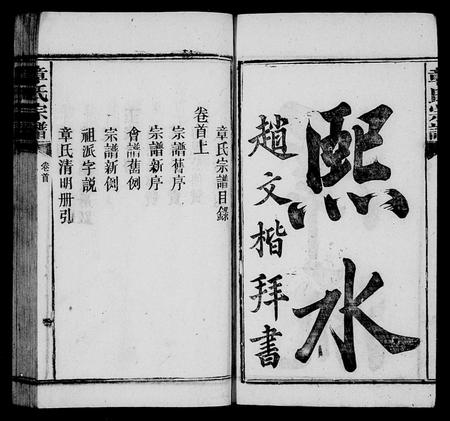 章氏宗譜
熙水
趙文楷拜書
章氏宗譜目錄
卷首上
宗譜舊序
宗譜新序
會譜舊例
宗譜新例
祖派字說
章氏清明册引
章氏宗譜
卷首